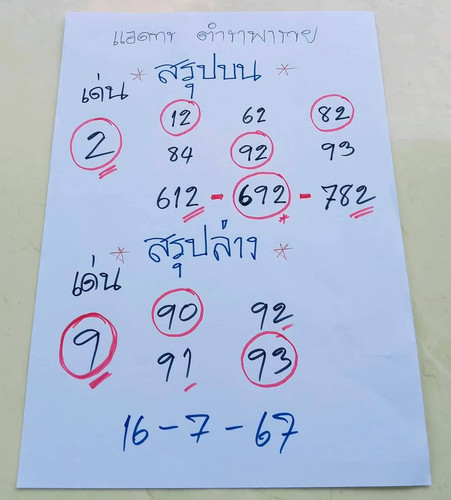 แอดการ ตำทาพาราย
* สรุปบน *
เด่น
2
12 62 82
84 92 93
612 - 692 - 782
* สรุปล่าง *
เด่น
9
90 92
91 93
16-7-67